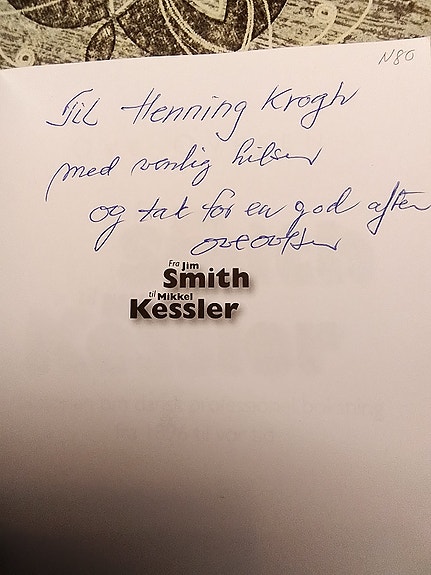 N80
Til Henning Krogh
med venlig hilsen
og tak for en god aften
Ove Ovesen
Fra Jim
Smith
til Mikkel
Kessler